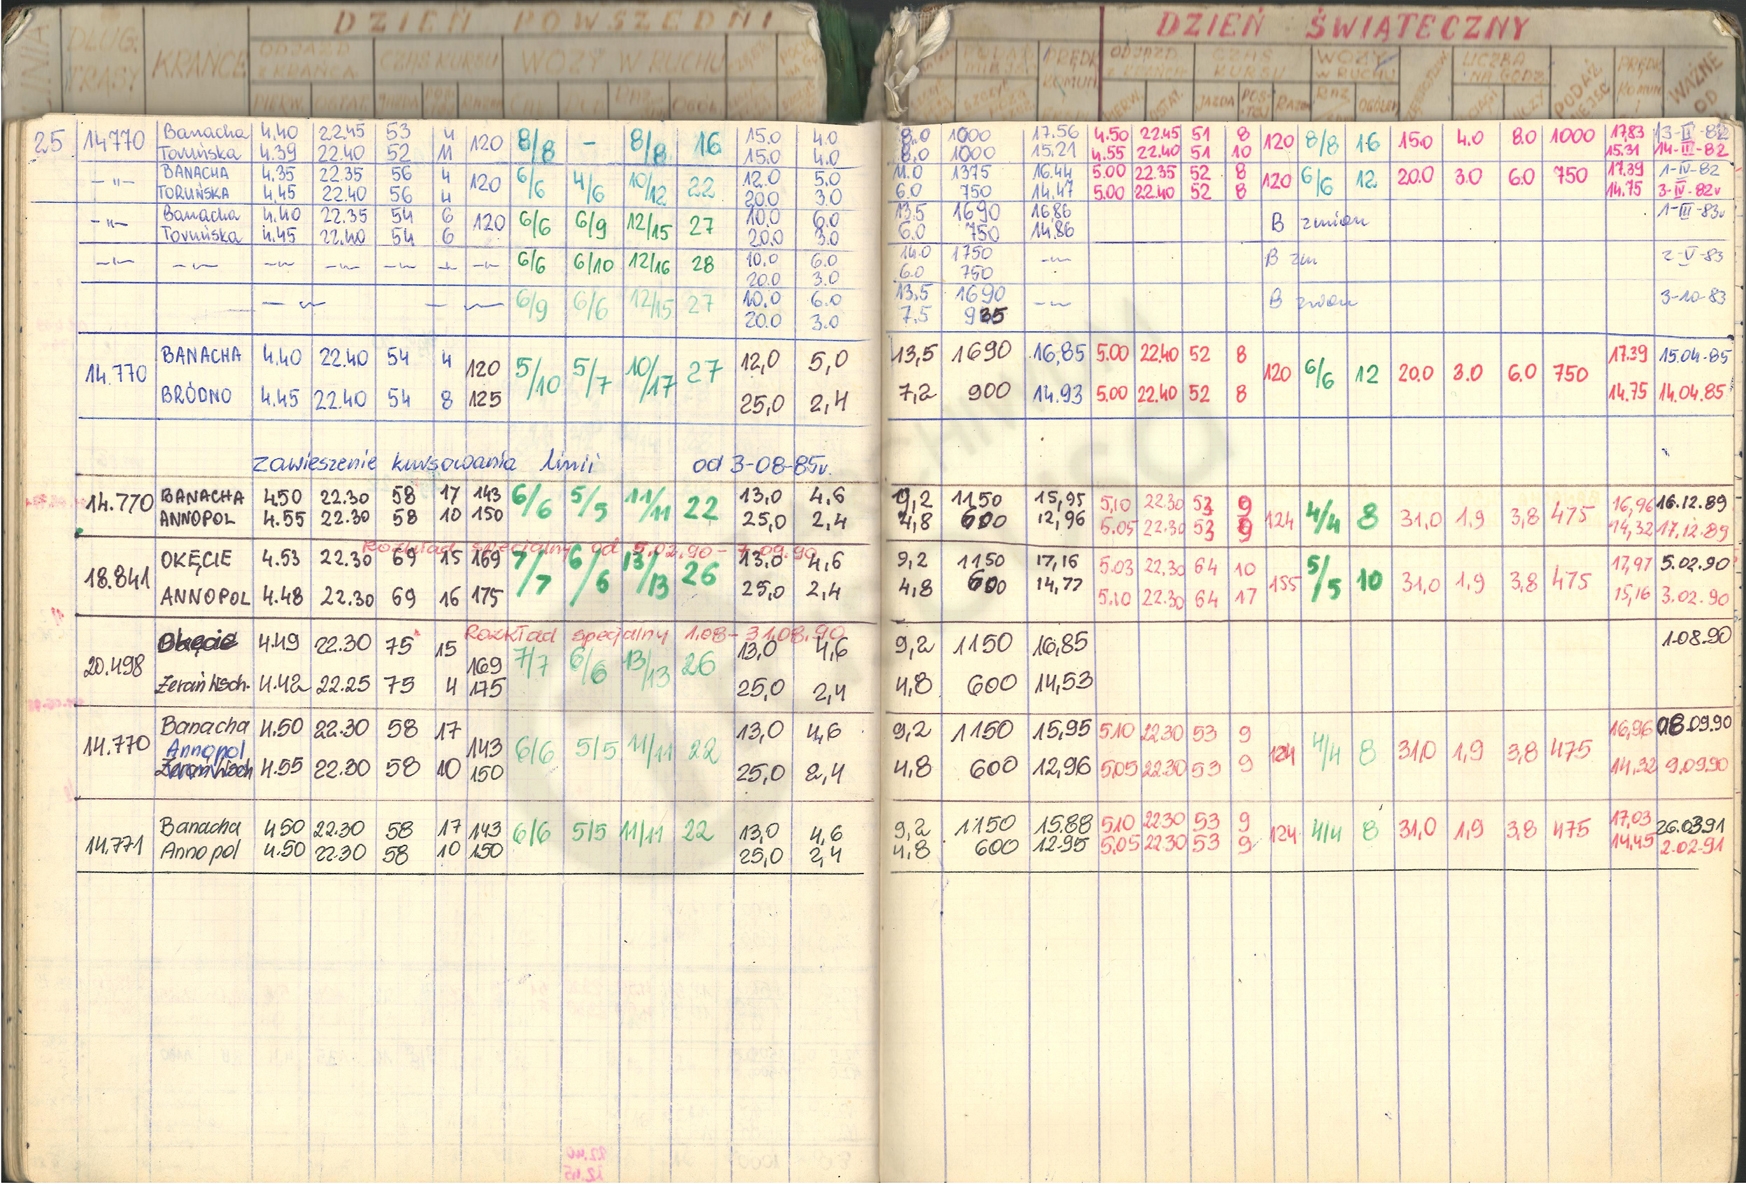 DZIEŃ POWSZEDNI DZIEŃ ŚWIĄTECZNY
LINIA DŁUG. TRASY KRAŃCE ODJAZD Z KRAŃCA CZAS KURSU WOZY W RUCHU
WAŻNE OD
25 14.770 Banacha 4.40 22.45 53 4 120 8/8 – 8/8 16 15.0 4.0 8.0 1000 17.56 4.50 22.45 51 8 120 8/8 16 15.0 4.0 8.0 1000 17.83
Toruńska 4.39 22.40 52 11 15.0 4.0 8.0 1000 15.21 4.55 22.40 51 10 15.31 14-III-82
–"– BANACHA 4.35 22.35 56 4 120 6/6 4/6 10/12 22 12.0 5.0 11.0 1375 16.44 5.00 22.35 52 8 120 6/6 12 20.0 3.0 6.0 750 17.39 1-IV-82
TORUŃSKA 4.45 22.40 56 4 20.0 3.0 6.0 750 14.47 5.00 22.40 52 8 14.75 3-IV-82r
–"– Banacha 4.40 22.35 54 6 120 6/6 6/9 12/15 27 10.0 6.0 13.5 1690 16.86 B zmian 1-III-83r
Toruńska 4.45 22.40 54 6 20.0 3.0 6.0 750 14.86
–"– –"– –"– –"– –"– –"– –"– 6/6 6/10 12/16 28 10.0 6.0 14.0 1750 –"– B zm 2-V-83
20.0 3.0 6.0 750
–"– –"– 6/9 6/6 12/15 27 10.0 6.0 13.5 1690 –"– B zmian 3-10-83
20.0 3.0 7,5 935
14.770 BANACHA 4.40 22.40 54 4 120 5/10 5/7 10/17 27 12,0 5,0 13,5 1690 16,85 5.00 22.40 52 8 120 6/6 12 20.0 3.0 6.0 750 17.39 15.04.85
BRÓDNO 4.45 22.40 54 8 125 25,0 2,4 7,2 900 14.93 5.00 22.40 52 8 14.75 14.04.85
Zawieszenie kursowania linii od 3-08-85r.
14.770 BANACHA 4.50 22.30 58 17 143 6/6 5/5 11/11 22 13,0 4,6 9,2 1150 15,95 5,10 22.30 53 9 124 4/4 8 31,0 1,9 3,8 475 16,96 16.12.89
ANNOPOL 4.55 22.30 58 10 150 25,0 2,4 4,8 600 12,96 5.05 22.30 53 9 14,32 17.12.89
Rozkład specjalny od 5.02.90 – 7.09.90
18.841 OKĘCIE 4.53 22.30 69 15 169 7/7 6/6 13/13 26 13,0 4,6 9,2 1150 17,16 5.03 22,30 64 10 155 5/5 10 31,0 1,9 3,8 475 17,97 5.02.90
ANNOPOL 4.48 22.30 69 16 175 25,0 2,4 4,8 600 14,77 5,10 22.30 64 17 15,16 3.02.90
Rozkład specjalny 1.08 – 31.08.90
20.498 Okęcie 4.49 22.30 75 15 169 7/7 6/6 13/13 26 13,0 4,6 9,2 1150 16,85 1.08.90
Żerań Wsch. 4.42 22.25 75 4 175 25,0 2,4 4,8 600 14,53
14.770 Banacha 4.50 22.30 58 17 143 6/6 5/5 11/11 22 13,0 4,6 9,2 1150 15,95 5.10 22.30 53 9 124 4/4 8 31,0 1,9 3,8 475 16,96 08.09.90
Annopol
4.55 22.30 58 10 150 25,0 2,4 4,8 600 12,96 5,05 22.30 53 9 14,32 9.09.90
14.771 Banacha 4.50 22.30 58 17 143 6/6 5/5 11/11 22 13,0 4,6 9,2 1150 15.88 5.10 22.30 53 9 124 4/4 8 31,0 1,9 3,8 475 17,03 26.03.91
Annopol 4.50 22.30 58 10 150 25,0 2,4 4,8 600 12.95 5,05 22.30 53 9 14,45 2.02.91